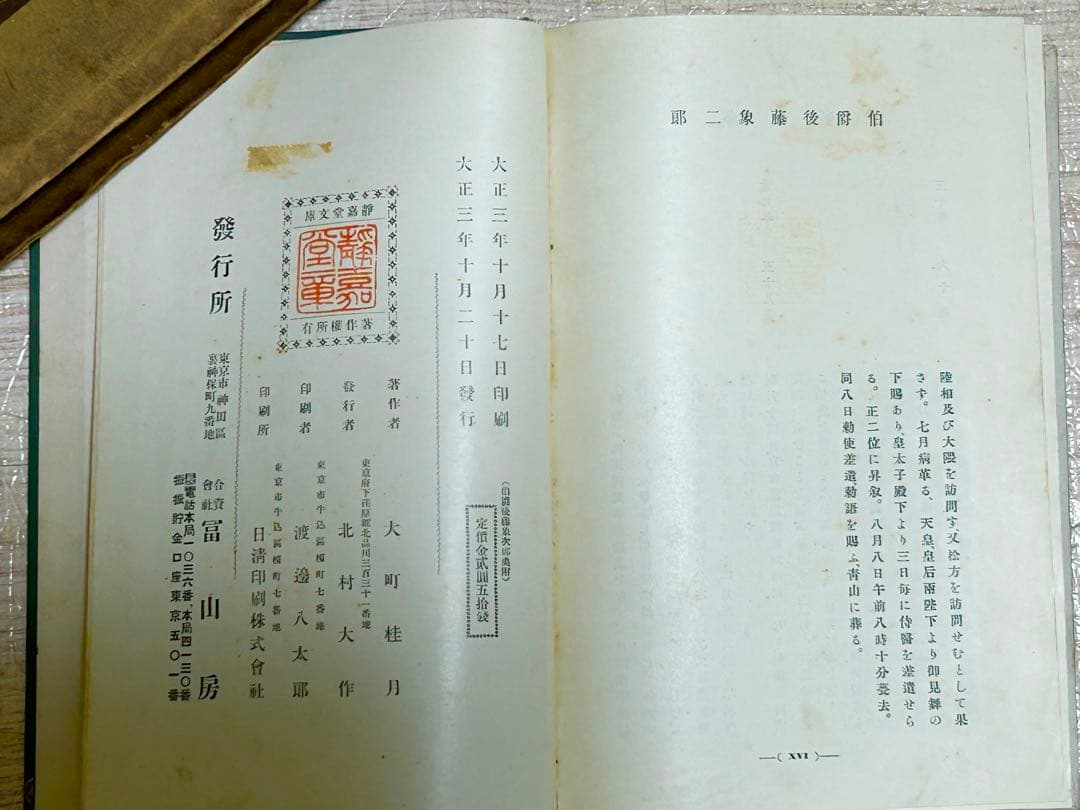 伯爵後藤象二郎
陸相及び大隈を訪問す、又松方を訪問せむとして果
さず。七月病革る、天皇皇后兩陛下より御見舞の
下賜あり、皇太子殿下より三日毎に侍醫を差遣せら
る。正二位に昇叙。八月八日午前八時十分薨去。
同八日勅使差遣、勅語を賜ふ、靑山に葬る。
( XVI )
大正三年十月十七日印刷
大正三年十月二十日發行
定價金貳圓五拾錢
著作者
東京府下荏原郡北品川三百三十一番地
大町桂月
發行者
北村大作
印刷者
東京市牛込區榎町七番地
渡邊八太郎
印刷所
東京市牛込區榎町七番地
日淸印刷株式會社
靜嘉堂文庫
靜嘉堂章
著作權所有
發行所
東京市神田區
裏神保町九番地
合資會社
冨山房
電話本局一〇三六番、本局四一三〇番
振替貯金口座東京五〇一番